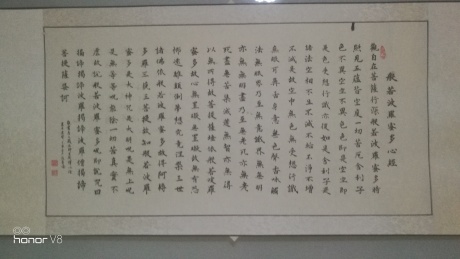 般若波羅蜜多心經
觀自在菩薩行深般若波羅蜜多時
照見五蘊皆空度一切苦厄舍利子
色不異空空不異色色即是空空即
是色受想行識亦復如是舍利子是
諸法空相不生不滅不垢不淨不增
不減是故空中無色無受想行識
無眼耳鼻舌身意無色聲香味觸
法無眼界乃至無意識界無無明
亦無無明盡乃至無老死亦無老
死盡無苦集滅道無智亦無得
以無所得故菩提薩埵依般若波羅
蜜多故心無罣礙無罣礙故無有恐
怖遠離顛倒夢想究竟涅槃三世
諸佛依般若波羅蜜多故得阿耨
多羅三藐三菩提故知般若波羅
蜜多是大神咒是大明咒是無上咒
是無等等咒能除一切苦真實不
虛故說般若波羅蜜多咒即說咒曰
揭諦揭諦波羅揭諦波羅僧揭諦
菩提薩婆訶
honor V8